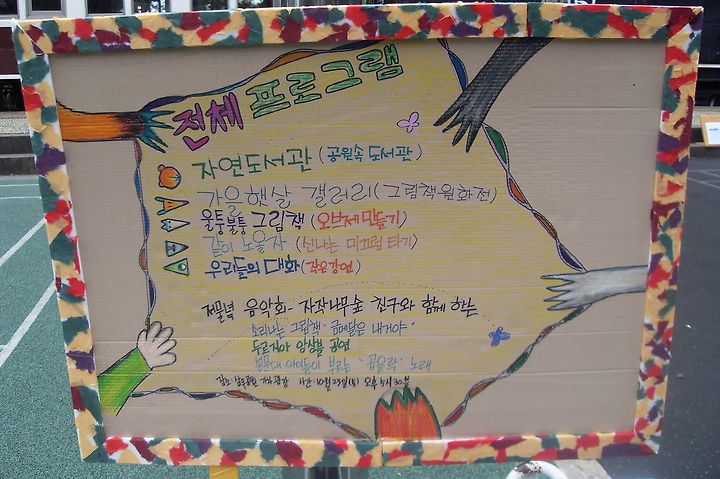 전체 프로그램
자연도서관 (공원속 도서관)
가을햇살 갤러리 (그림책원화전)
울퉁불퉁 그림책 (오브제만들기)
같이 노올자 (신나는 미끄럼 타기)
우리들의 대화 (작은강연)
저물녘 음악회 - 자작나무숲 친구와 함께 하는
소리나는 그림책 '금메달은 내거야'
두근거아 앙상블 공연
아이들이 부르는 노래
10월 23일 오후 5시 30분